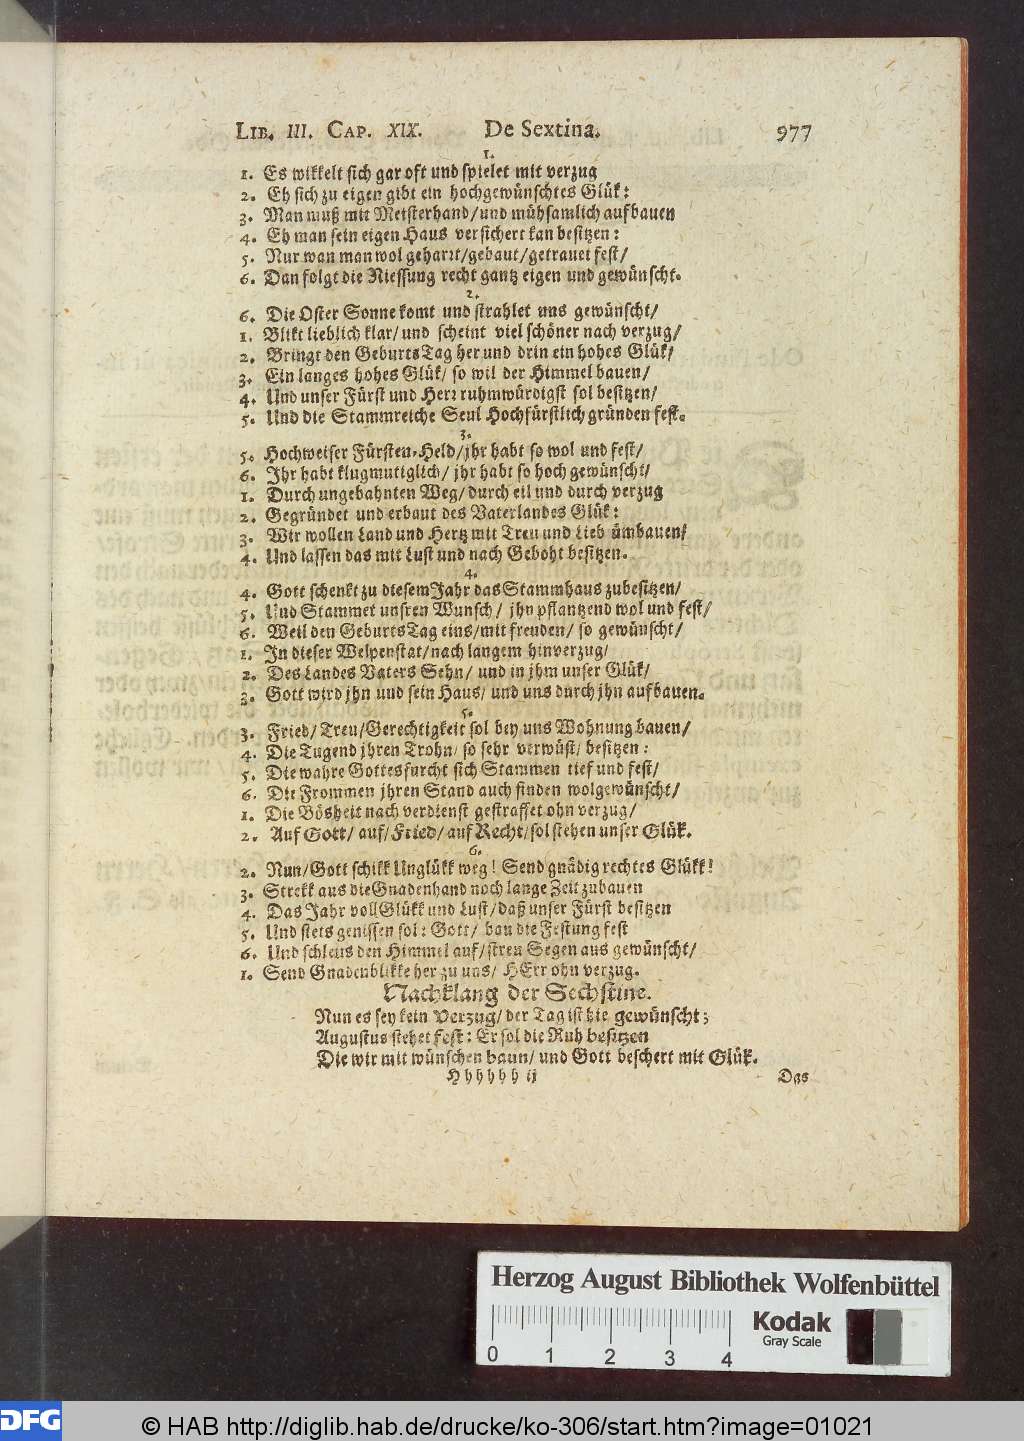 LIB. III. CAP. XIX. De Sextina. 977
1.
1. Es wikkelt sich gar oft und spielet mit verzug
2. Eh sich zu eigen gibt ein hochgewünschtes Glük:
3. Man muß mit Meisterhand/und mühsamlich aufbauen
4. Eh man sein eigen Haus versichert kan besitzen:
5. Nur wan man wol geharrt/gebaut/getrauet fest/
6. Dan folgt die Niessung recht gantz eigen und gewünscht.
2.
6. Die Oster Sonne komt und strahlet uns gewünscht/
1. Blikt lieblich klar/und scheint viel schöner nach verzug/
2. Bringt den GeburtsTag her und drin ein hohes Glük/
3. Ein langes hohes Glük/ so wil der Himmel bauen/
4. Und unser Fürst und Herr ruhmwürdigst sol besitzen/
5. Und die Stammreiche Seul Hochfürstlich gründen fest.
3.
5. Hochweiser Fürsten-Held/jhr habt so wol und fest/
6. Ihr habt klugmutiglich/ jhr habt so hoch gewünscht/
1. Durch ungebahnten Weg/durch eil und durch verzug
2. Gegründet und erbaut des Vaterlandes Glük:
3. Wir wollen Land und Hertz mit Treu und Lieb ümbauen/
4. Und lassen das mit Lust und nach Geboht besitzen.
4.
4. Gott schenkt zu diesem Jahr das Stammhaus zubesitzen/
5. Und Stammet unsren Wunsch/ jhn pflantzend wol und fest/
6. Weil den GeburtsTag eins/mit freuden/ so gewünscht/
1. In dieser Welpenstat/nach langem hinverzug/
2. Des Landes Vaters Sehn/ und in jhm unser Glük/
3. Gott wird jhn und sein Haus/ und uns durch jhn aufbauen.
5.
3. Fried/Treu/Gerechtigkeit sol bey uns Wohnung bauen/
4. Die Tugend jhren Trohn/ so sehr verwüst/ besitzen:
5. Die wahre Gottesfurcht sich Stammen tief und fest/
6. Die Frommen jhren Stand auch finden wolgewünscht/
1. Die Bösheit nach verdienst gestraffet ohn verzug/
2. Auf Gott/ auf/Fried/auf Recht/sol stehen unser Glük.
6.
2. Nun/Gott schikk Unglükk weg! Send gnädig rechtes Glükk!
3. Strekk aus die Gnadenhand noch lange Zeit zubauen
4. Das Jahr voll Glükk und Lust/daß unser Fürst besitzen
5. Und stets genissen sol: Gott/ bau die Festung fest
6. Und schleus den Himmel auf/streu Segen aus gewünscht/
1. Send Gnadenblikke her zu uns/ HErr ohn verzug.
Nachklang der Sechstine.
Nun es sey kein Verzug/der Tag ist hie gewünscht;
Augustus stehet fest: Er sol die Ruh besitzen
Die wir mit wünschen baun/und Gott beschert mit Glük.
Hhhhhh ij Das
Herzog August Bibliothek Wolfenbüttel
Kodak
Gray Scale
0 1 2 3 4
DFG © HAB http://diglib.hab.de/drucke/ko-306/start.htm?image=01021